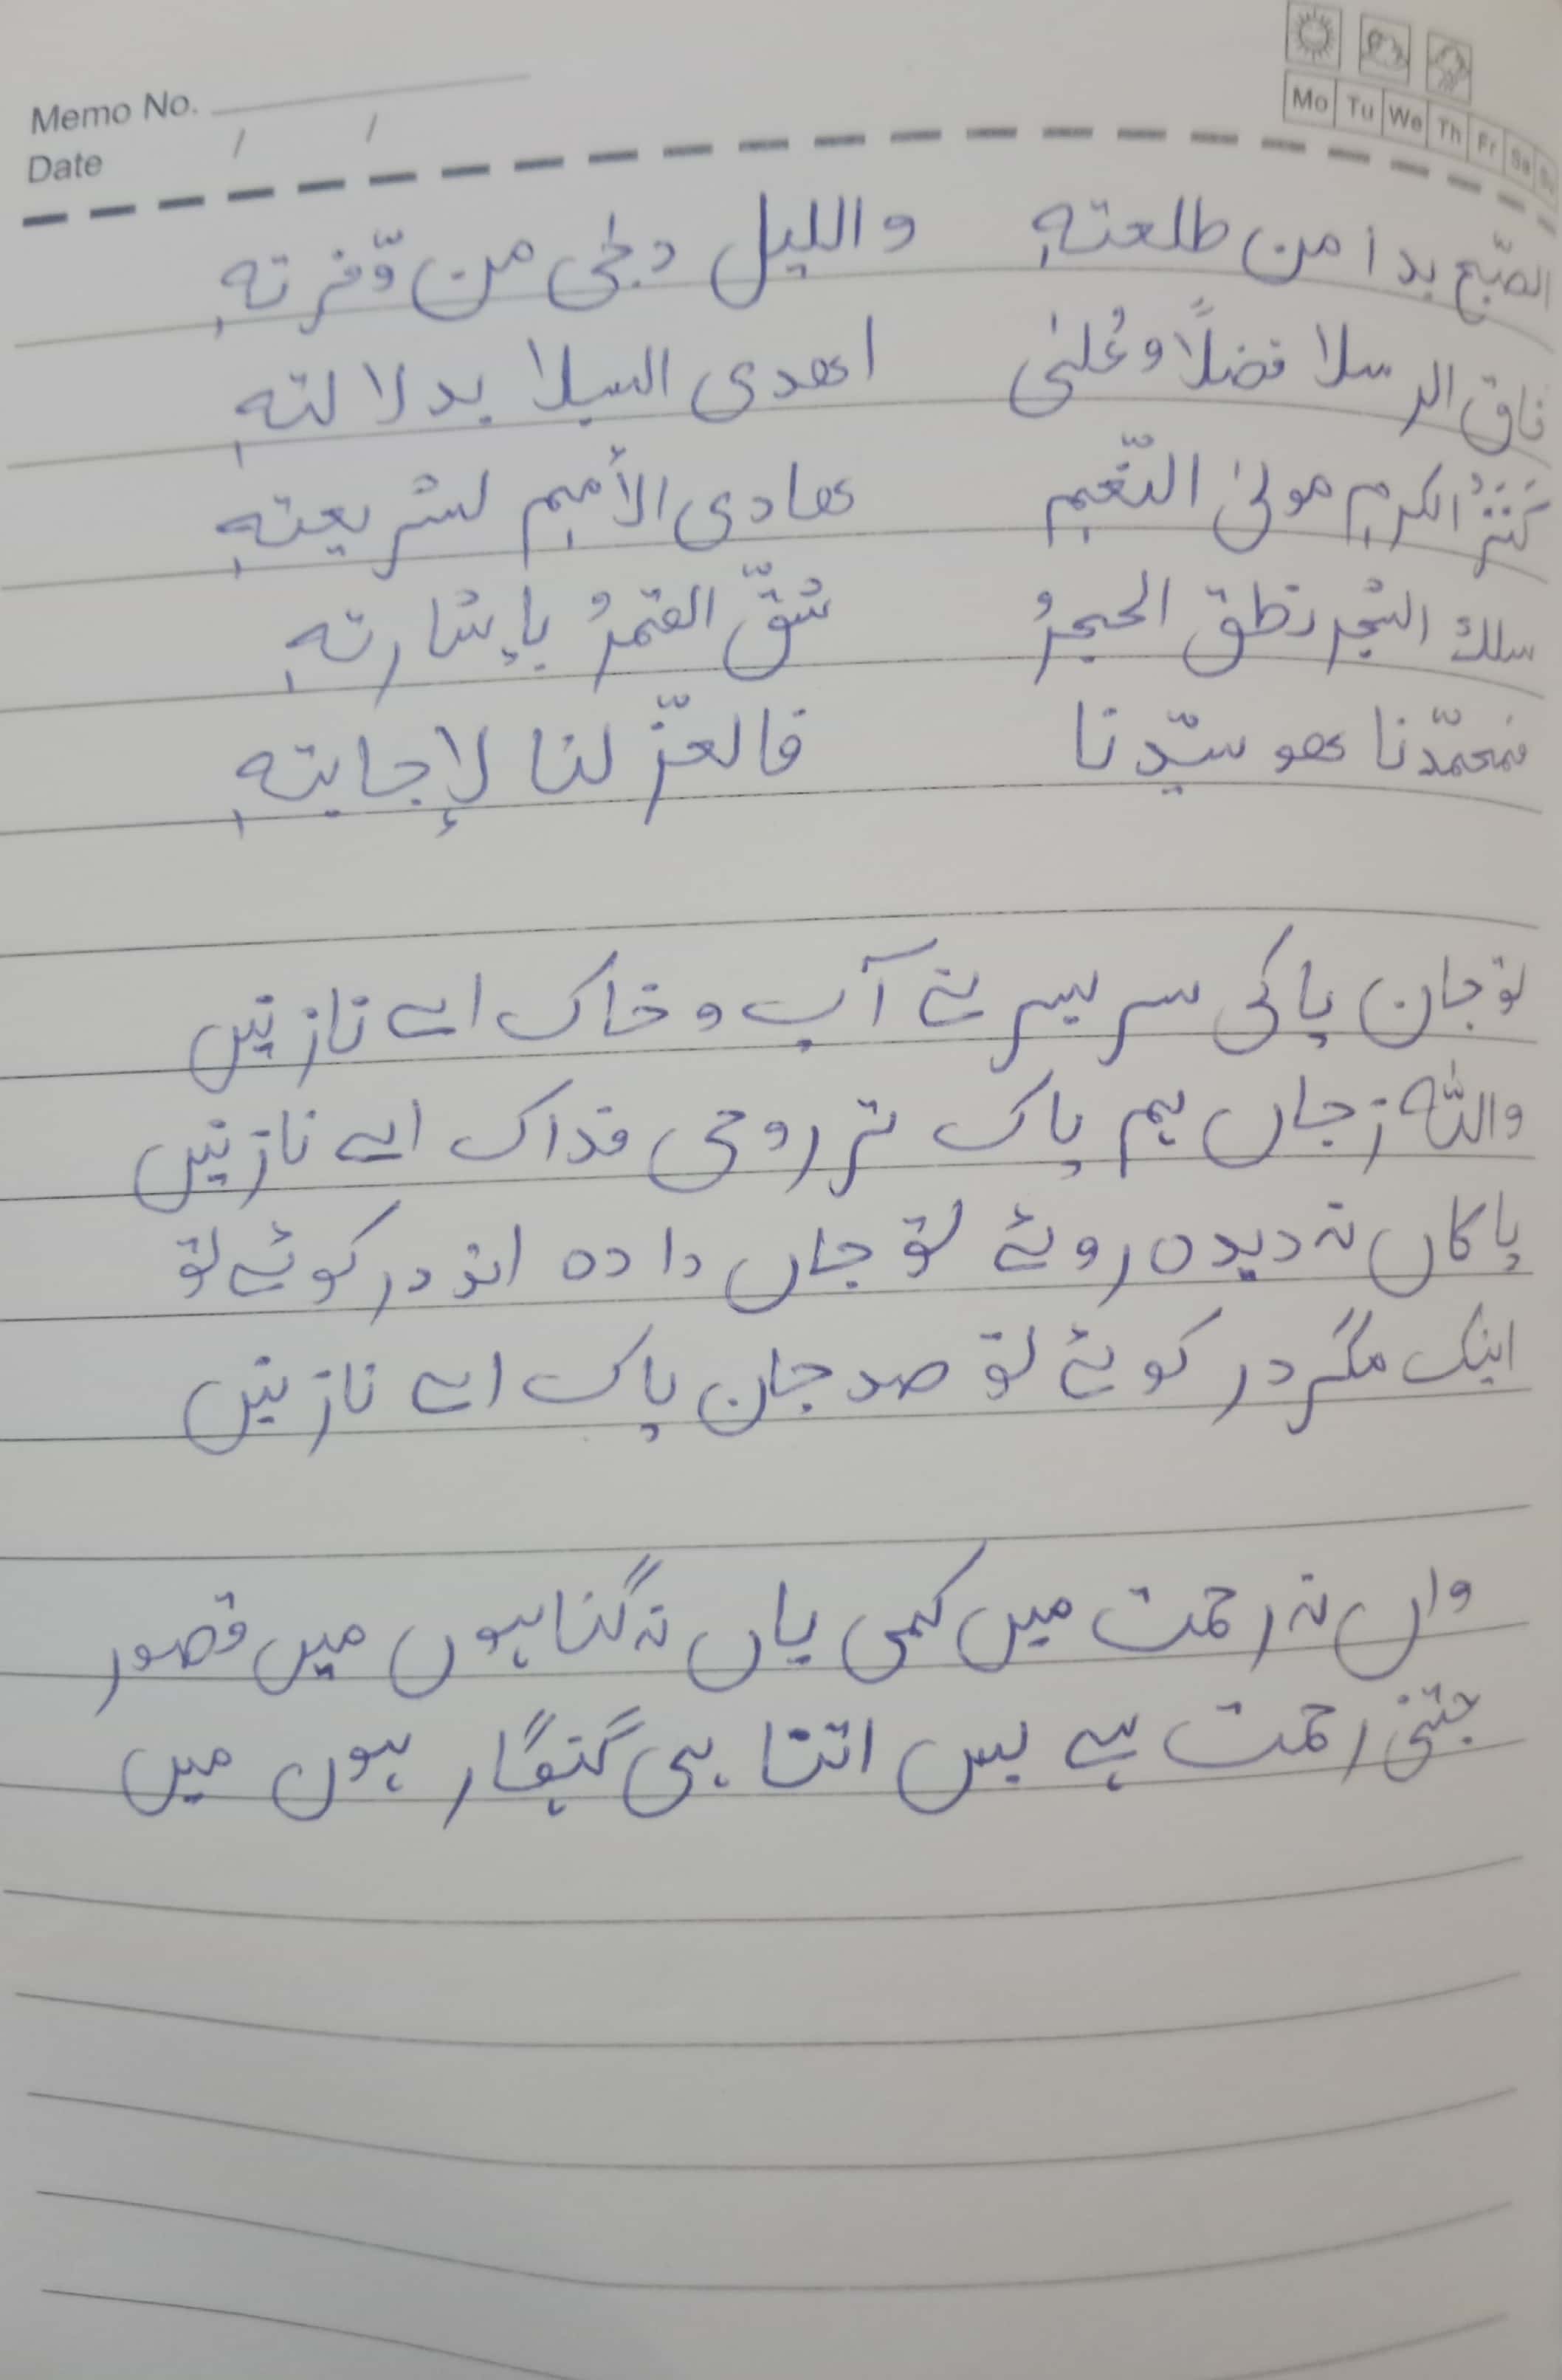 Memo No.
Date / /
Mo Tu We Th Fr Sa Su
الصّبح بدا من طلعتهٖ والليل دجٰی من وّفرتهٖ
فاق الرسلا فضلًا وعُلیٰ اهدى السبلا بدلالتهٖ
كَنَزُ الكرمِ مولیٰ النّعمِ هادى الأممِ لشريعتهٖ
سلك الشجر نطق الحجرُ شُقّ القمرُ بإشارتهٖ
فمحمّدنا هو سیّدنا فالعزّ لنا لإجابتهٖ
تو جان پاکی سر بسر نے آب و خاک اے نازنیں
واللّٰہ ز جاں ہم پاک تر روحی فداک اے نازنیں
پاکاں نہ دیدہ روئے تو جاں دادہ اند در کوئے تو
اینک مگر در کوئے تو صد جان پاک اے نازنیں
واں نہ رحمت میں کمی یاں نہ گناہوں میں قصور
جتنی رحمت ہے بس اتنا ہی گنہگار ہوں میں